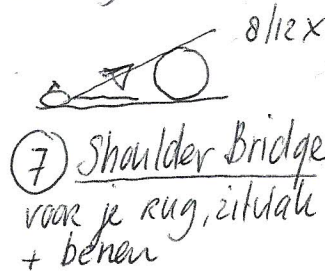 8/12 X
7 Shoulder Bridge
voor je rug, zitvlak
+ benen